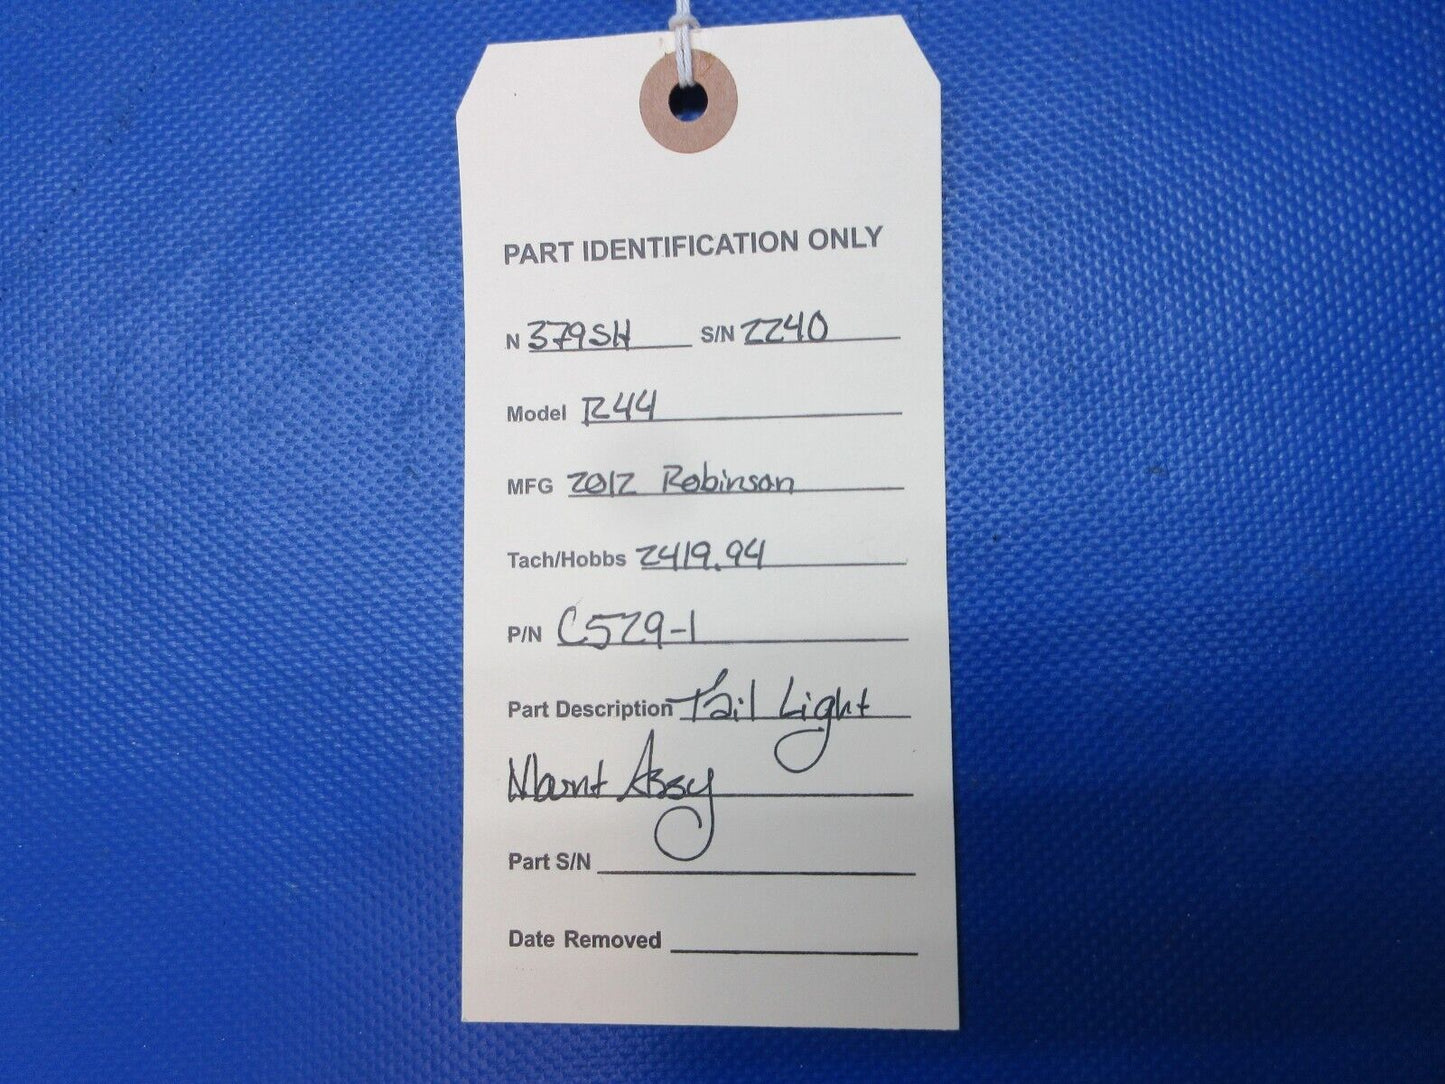 PART IDENTIFICATION ONLY
N 379SH S/N 2240
Model R44
MFG 2012 Robinson
Tach/Hobbs 2419.94
P/N C529-1
Part Description Tail Light
Mount Assy
Part S/N
Date Removed